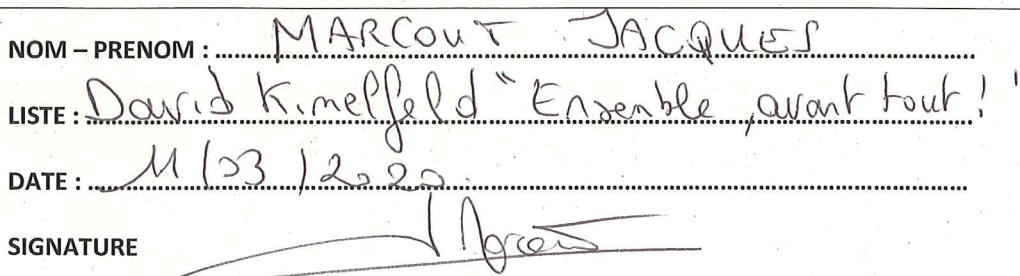 NOM – PRENOM : MARCOUT JACQUES
LISTE : David Kimelfeld "Ensemble, avant tout !"
DATE : 11/03/2020
SIGNATURE